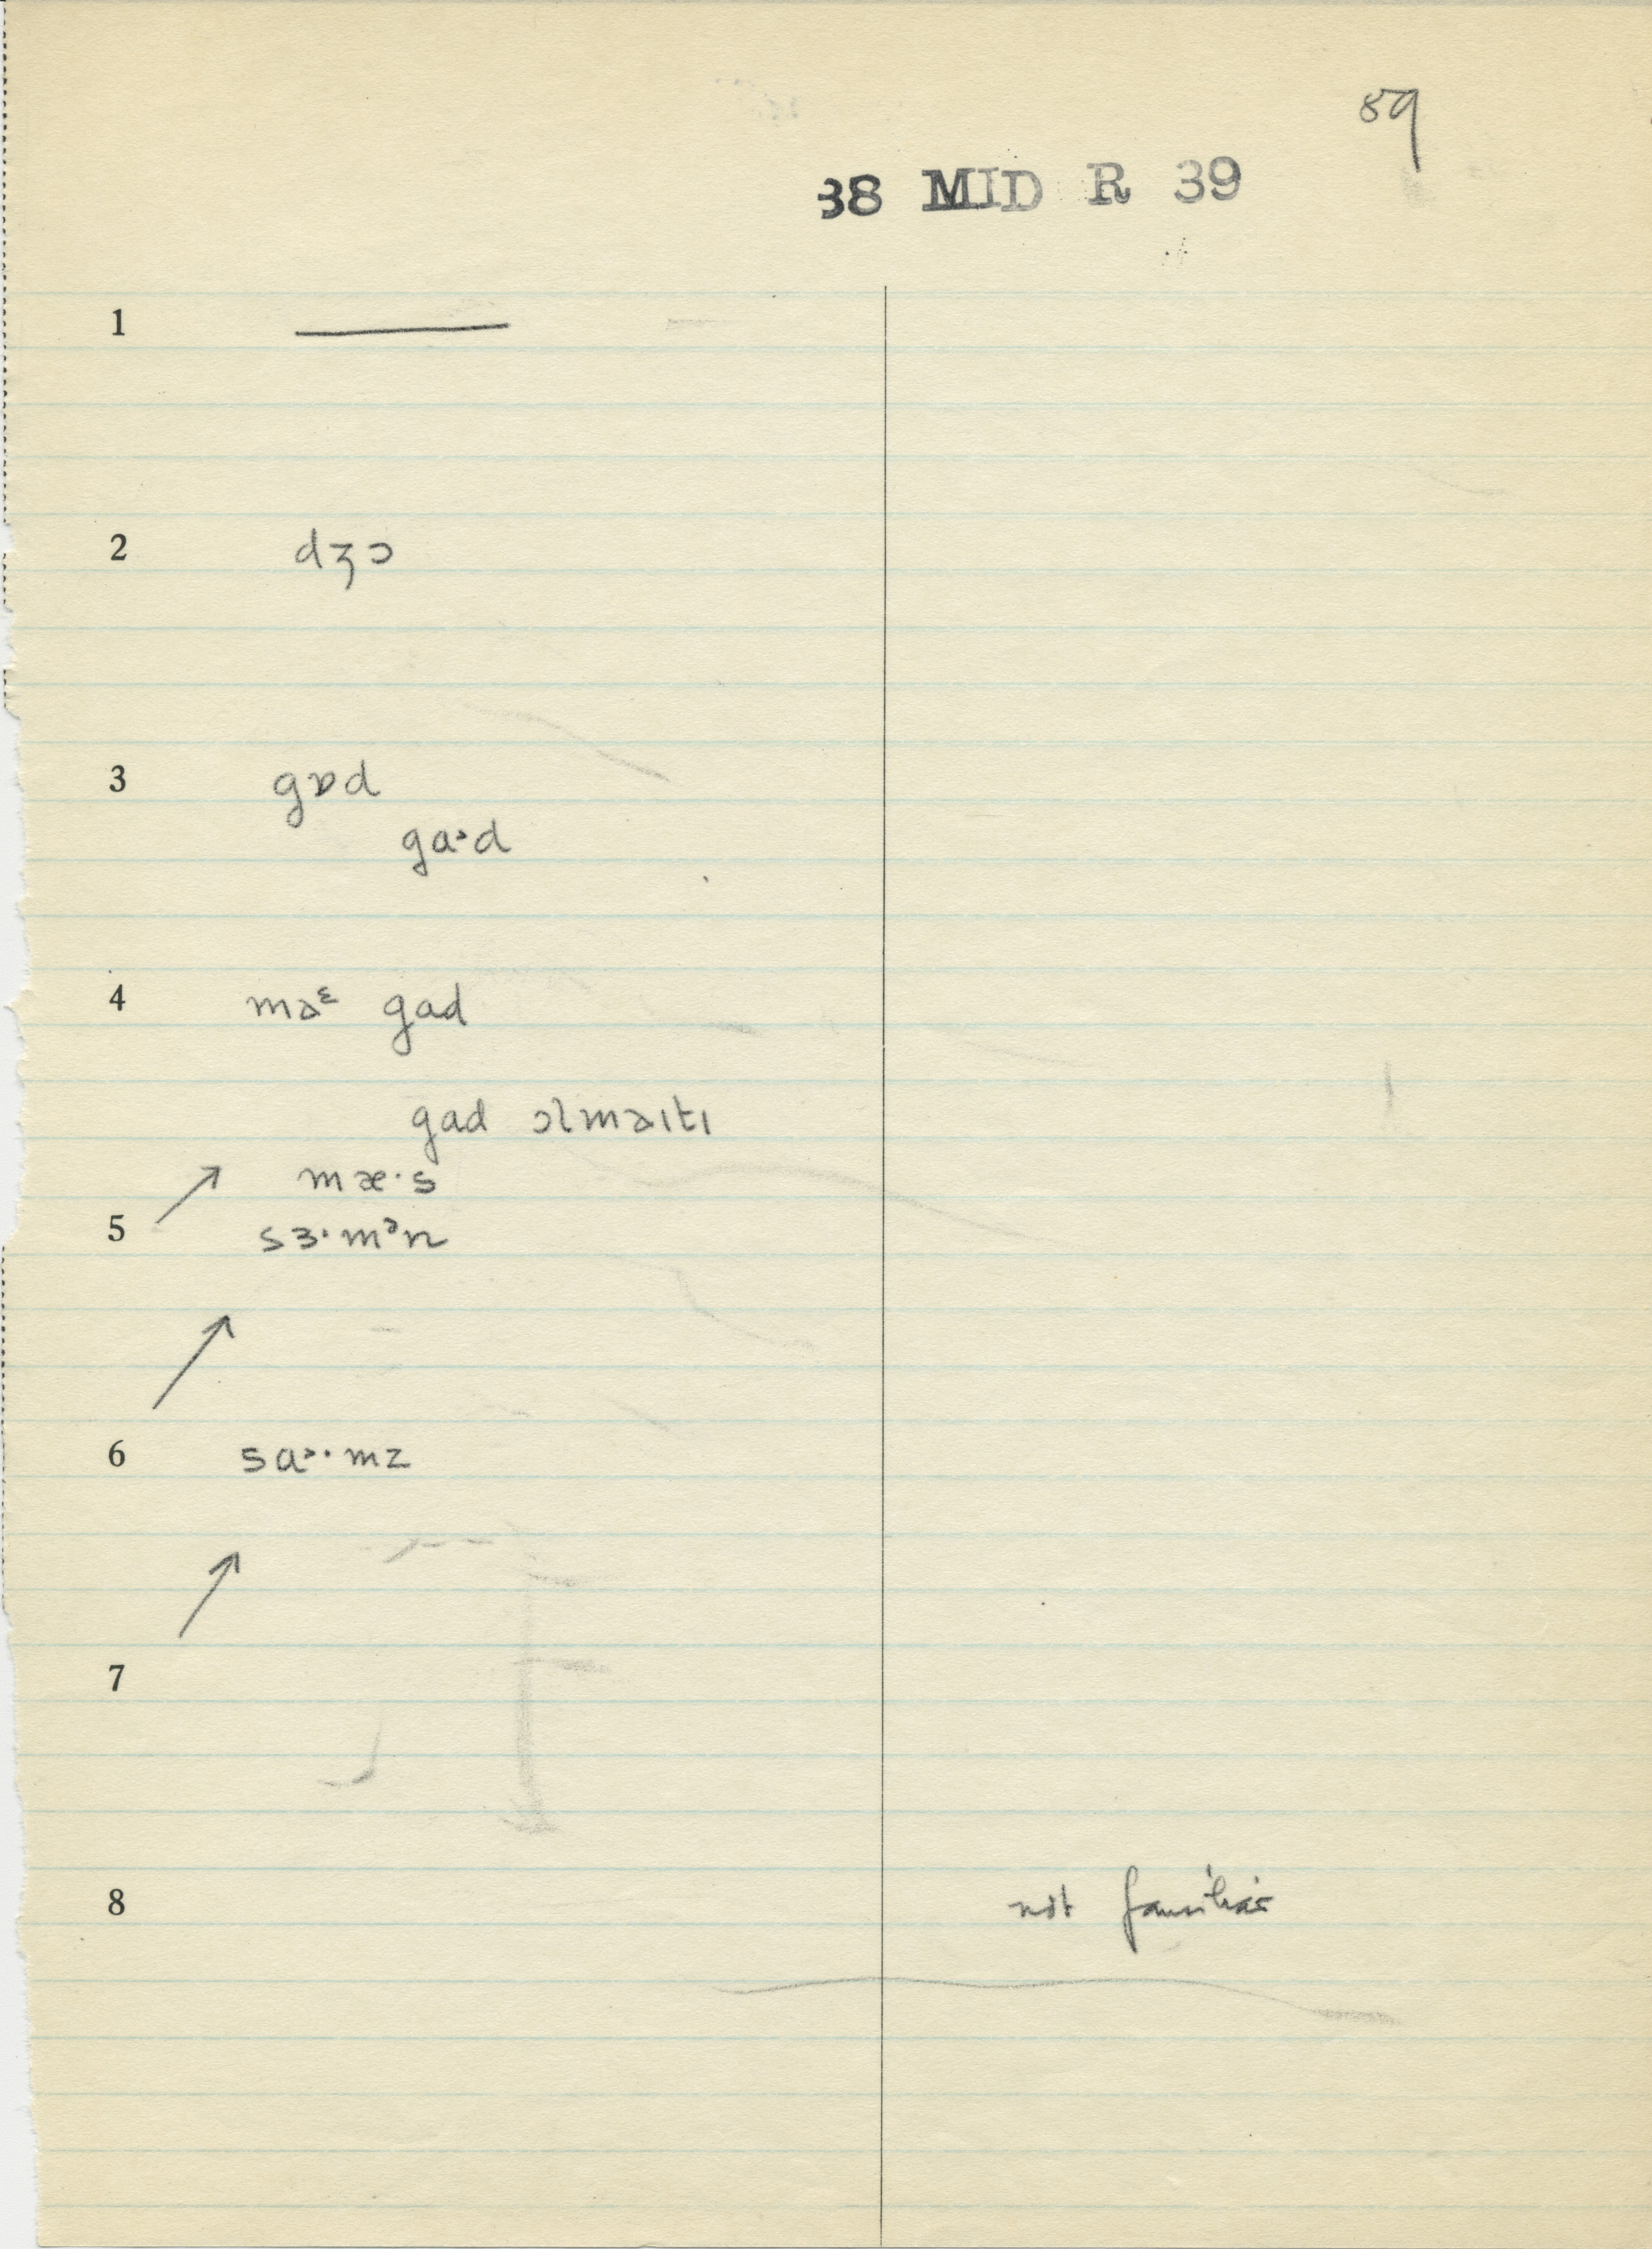 89
38 MID R 39
1 ———
2 dʒɔ
3 gɒd
ga˃d
4 məᵋ gad
gad ɔlməɪtɪ
↗ mæ·s
5 sɜ·mᵊn
↗
6 sa˃·mz
↗
7
8 not familiar